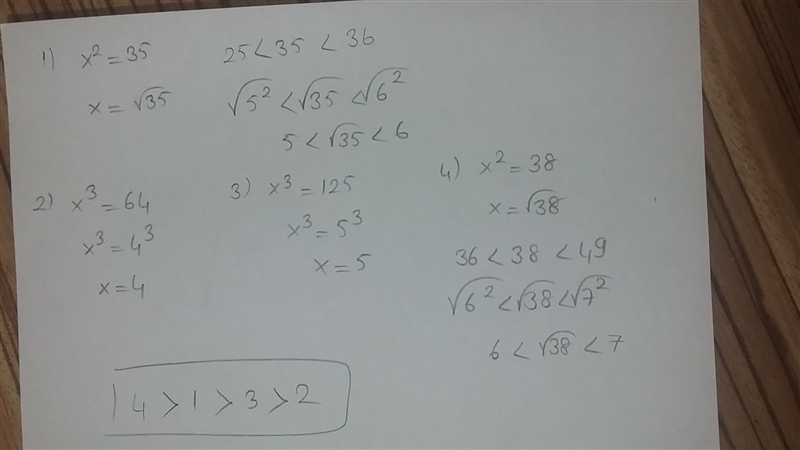 1) x² = 35
x = √35
25 < 35 < 36
√5² < √35 < √6²
5 < √35 < 6
2) x³ = 64
x³ = 4³
x = 4
3) x³ = 125
x³ = 5³
x = 5
4) x² = 38
x = √38
36 < 38 < 49
√6² < √38 < √7²
6 < √38 < 7
4 > 1 > 3 > 2